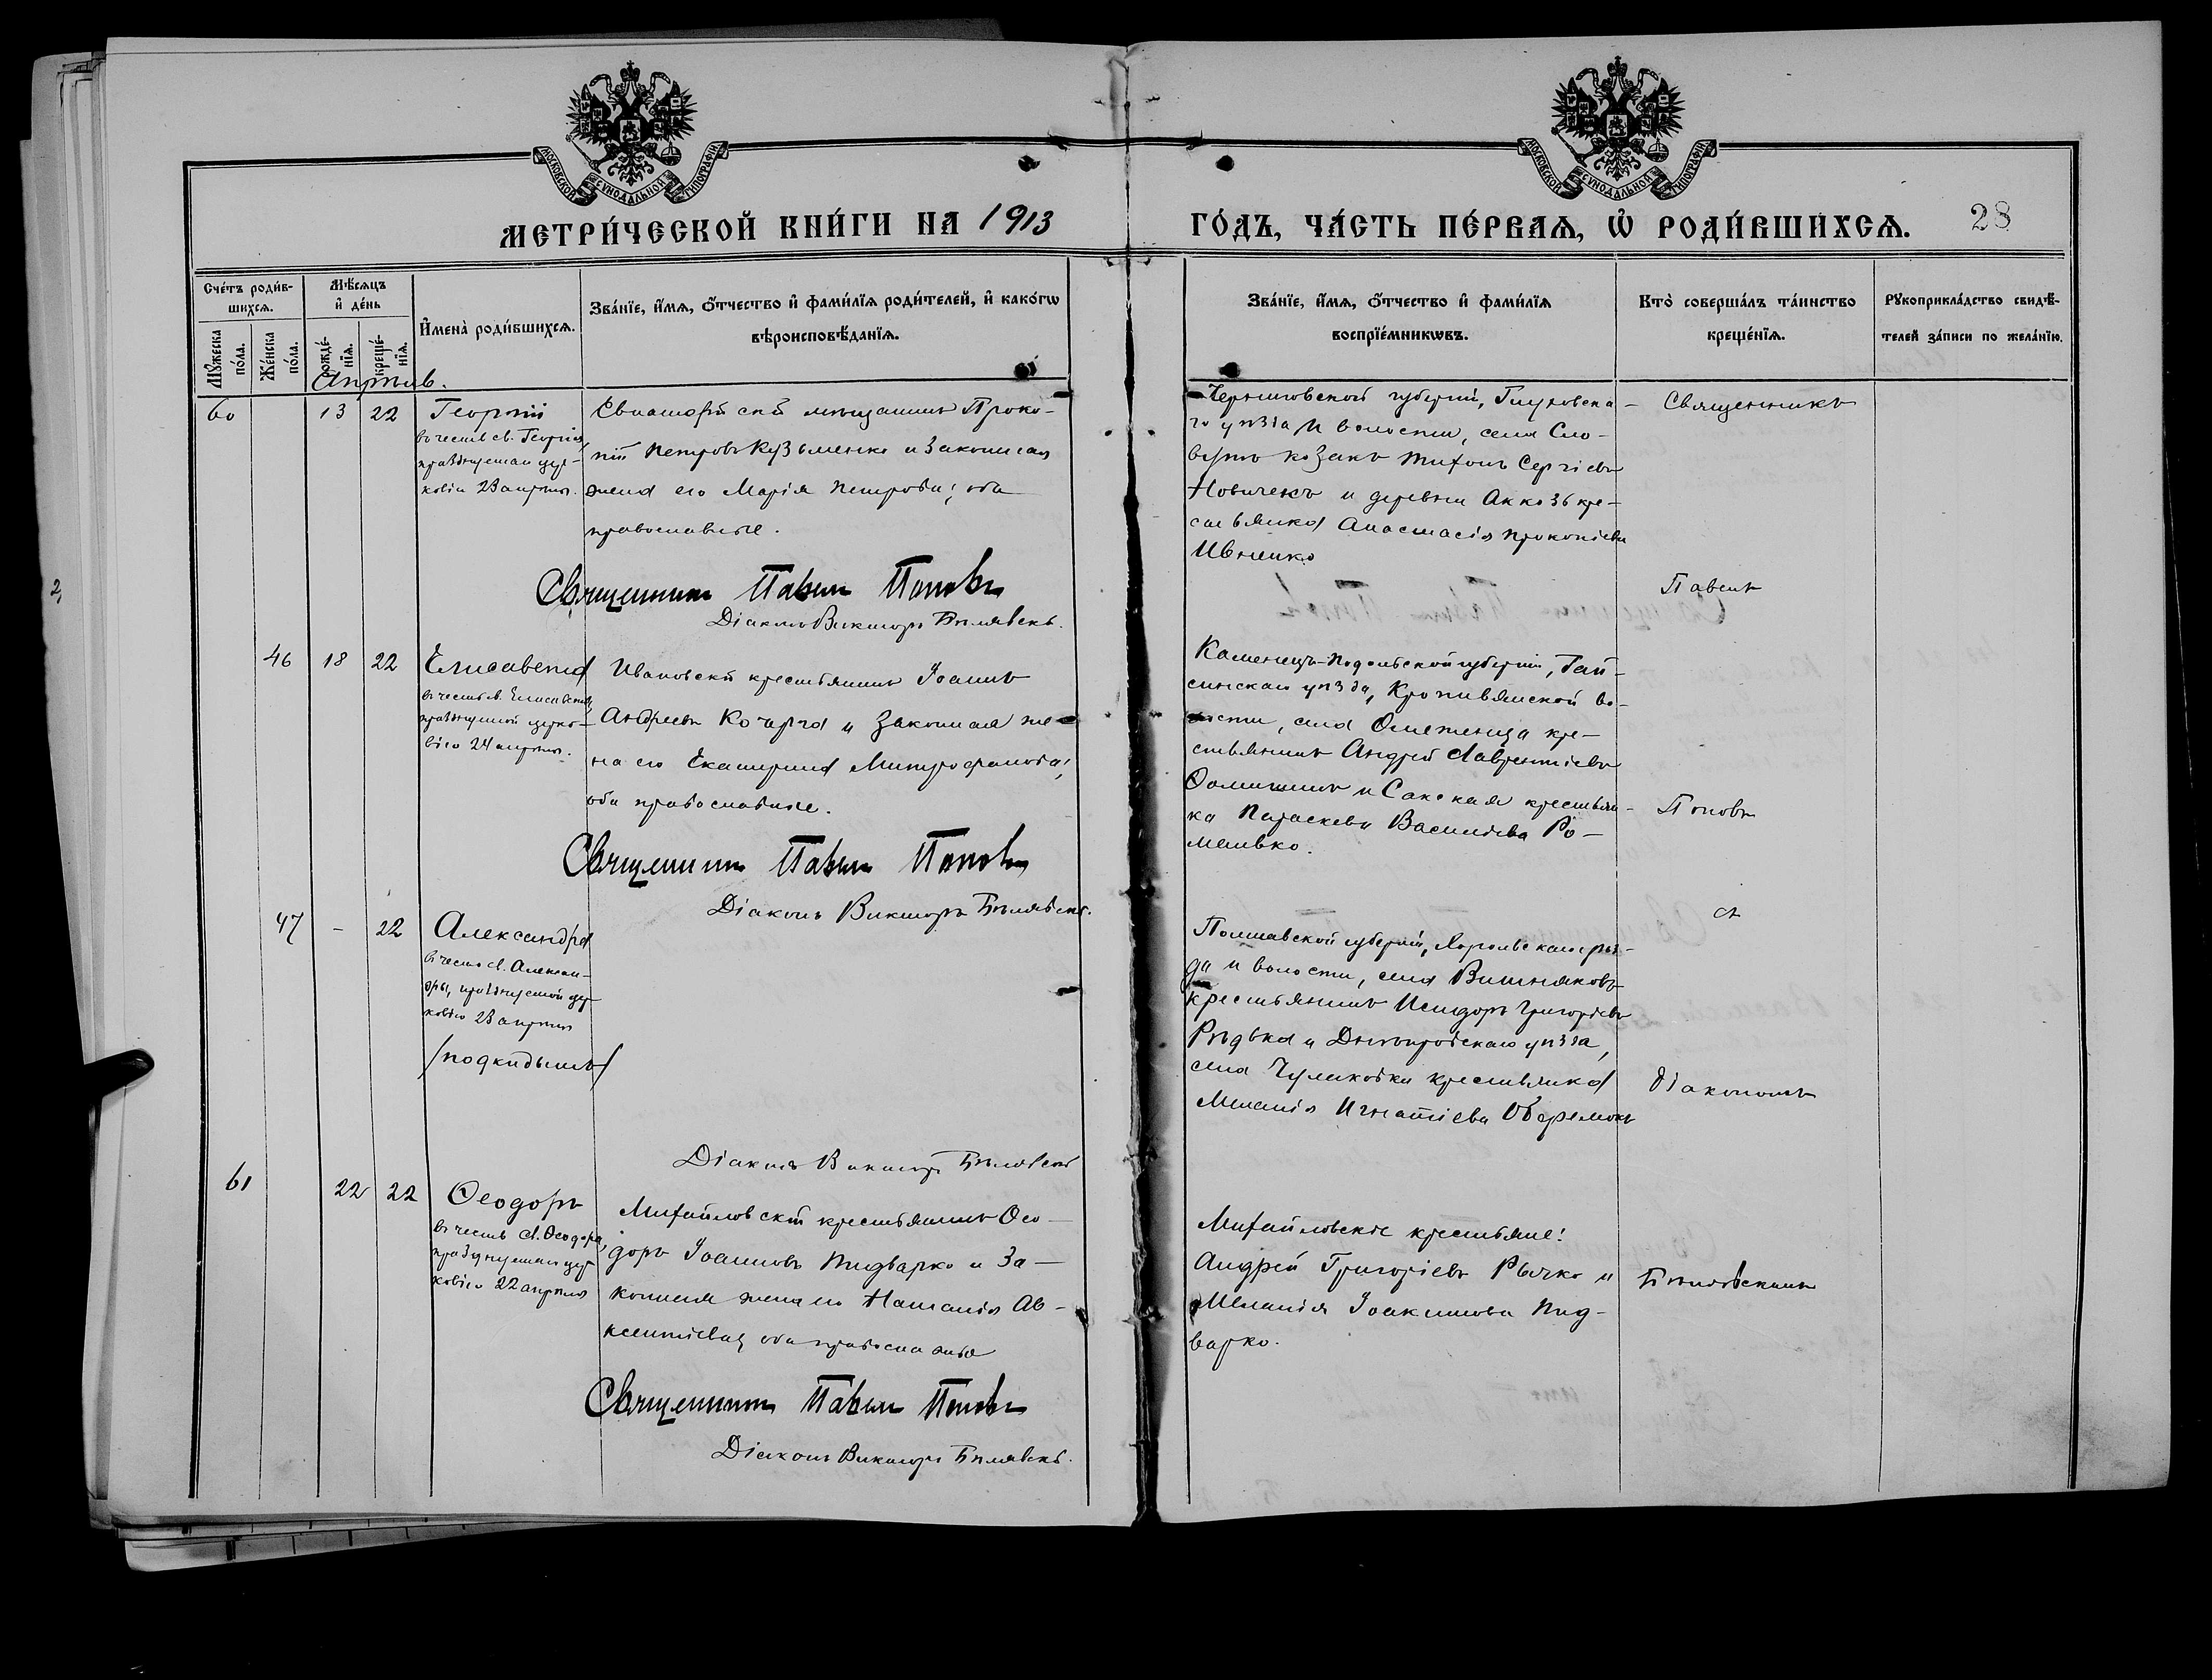 МОСКОВСКОЙ СѴНОДАЛЬНОЙ ТИПОГРАФІИ
МОСКОВСКОЙ СѴНОДАЛЬНОЙ ТИПОГРАФІИ
МЕТРИ́ЧЕСКОЙ КНИ́ГИ НА 1913
ГО́ДЪ, ЧА́СТЬ ПЕ́РВАѦ, Ѡ҆ РОДИ́ВШИХСѦ.
28
Сче́тъ роди́в-
шихсѧ.
Мꙋ́жеска
по́ла.
Же́нска
по́ла.
Мѣ́сѧцъ
и҆ де́нь
рожде́-
нїѧ.
креще́-
нїѧ.
И҆мена̀ роди́вшихсѧ.
Зва́нїе, и҆́мѧ, ѻ҆́тчество и҆ фами́лїѧ роди́телей, и҆ како́гѡ
вѣроисповѣ́данїѧ.
Зва́нїе, и҆́мѧ, ѻ҆́тчество и҆ фами́лїѧ
воспрїе́мникѡвъ.
Кто̀ соверша́лъ та́инство
креще́нїѧ.
Рꙋкоприкла́дство свидѣ́-
телей за́писи по жела́нїю.
Апрѣль.
60
13
22
Георгій
въ честь св. Георгія,
празднуемаго цер-
ковію 23 апрѣля.
мѣщанинъ Проко-
пій Петровъ Кузьменко и законная
жена его Марія Петрова; оба
православные.
Священникъ Павелъ Поповъ
Діаконъ Викторъ Бѣлявскій.
Черниговской губерніи, Глуховска-
го уѣзда и волости, села Сло-
вутъ козакъ Тихонъ Сергіевъ
Новичекъ и деревни кре-
стьянка Анастасія Прокопіева
Ивненко
Священникъ
Павелъ
46
18
22
Елисавета
въ честь св. Елисаветы,
празднуемой церко-
вію 24 апрѣля.
Ивановскій крестьянинъ Іоаннъ
Андреевъ Кочерга и законная же-
на его Екатерина Митрофанова;
оба православные.
Священникъ Павелъ Поповъ
Діаконъ Викторъ Бѣлявскій.
Каменецъ-Подольской губерніи, Гай-
синскаго уѣзда, Кропивянской во-
лости, села крe-
стьянинъ Андрей Лаврентіевъ
и крестьян-
ка Параскева Васильева Ро-
менько.
Поповъ
47
-
22
Александра
въ честь св. Алексан-
дры, празднуемой цер-
ковію 23 апрѣля
/подкидышъ/
Діаконъ Викторъ Бѣлявскій
Полтавской губерніи, Хорольскаго уѣз-
да и волости, села Вишняковъ
крестьянинъ Исидоръ Григорьевъ
Рѣдька и Днѣпровскаго уѣзда,
села Чулаковки крестьянка
Меланія Игнатіева Оберемокъ
съ
діакономъ
61
22
22
Ѳеодоръ
въ честь св. Ѳеодора,
празднуемаго цер-
ковію 22 апрѣля
Михайловскій крестьянинъ Ѳео-
доръ Іоанновъ Пидварко и за-
конная жена его Наталія Ав-
ксентіева; оба православные
Священникъ Павелъ Поповъ
Діаконъ Викторъ Бѣлявскій.
Михайловскіе крестьяне:
Андрей Григоріевъ Рычко и
Меланія Іоакимова Пид-
варко.
Бѣлявскимъ